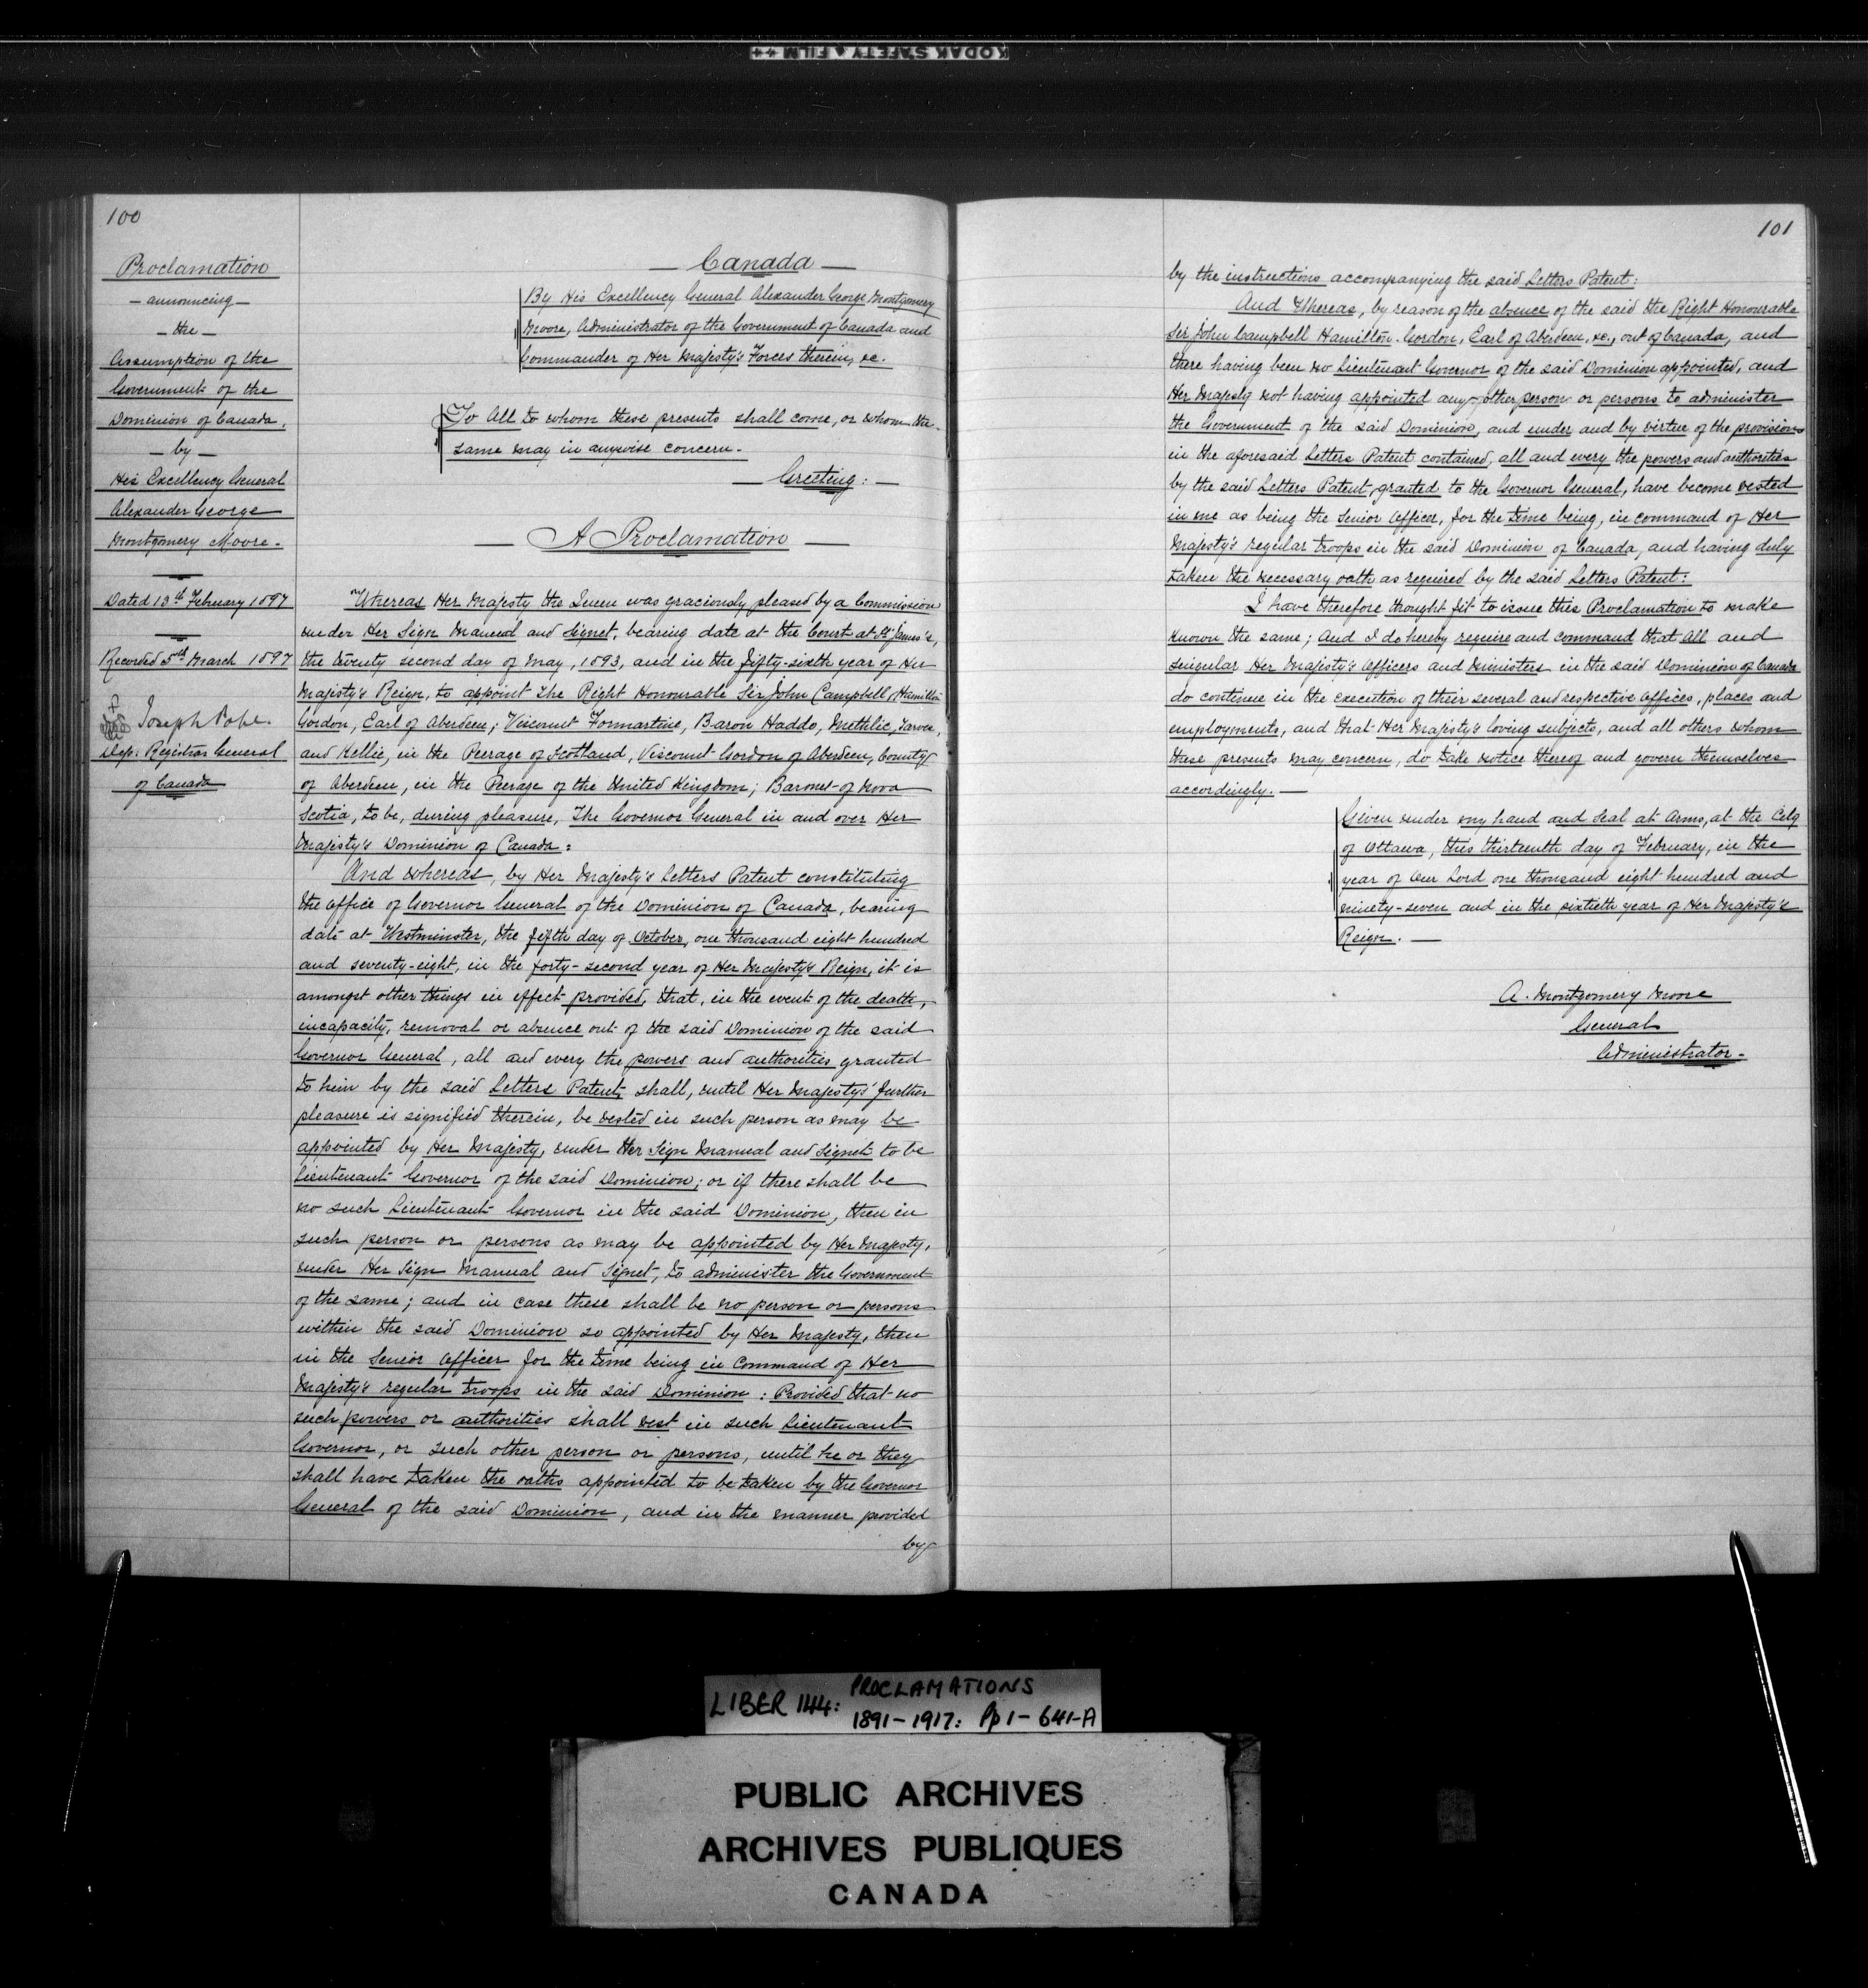 KODAK SAFETY FILM
100
Proclamation
— announcing —
— the —
Assumption of the
Government of the
Dominion of Canada,
— by —
His Excellency General
Alexander George
Montgomery Moore.
Dated 13th February 1897
Recorded 5th March 1897
Joseph Pope.
Dep. Registrar General
of Canada
— Canada —
By His Excellency General Alexander George Montgomery
Moore, Administrator of the Government of Canada and
Commander of Her Majesty's Forces therein, &c.
To All to whom these presents shall come, or whom the
same may in anywise concern —
— Greeting: —
— A Proclamation —
Whereas Her Majesty the Queen was graciously pleased by a Commission
under Her Sign Manual and Signet, bearing date at the Court at St James's,
the twenty second day of May, 1893, and in the fifty-sixth year of Her
Majesty's Reign, to appoint The Right Honourable Sir John Campbell Hamilton
Gordon, Earl of Aberdeen; Viscount Formartine, Baron Haddo, Methlic, Tarves,
and Kellie, in the Peerage of Scotland, Viscount Gordon of Aberdeen, County
of Aberdeen, in the Peerage of the United Kingdom; Baronet of Nova
Scotia, to be, during pleasure, The Governor General in and over Her
Majesty's Dominion of Canada:
And whereas, by Her Majesty's Letters Patent constituting
the Office of Governor General of the Dominion of Canada, bearing
date at Westminster, the fifth day of October, one thousand eight hundred
and seventy-eight, in the forty-second year of Her Majesty's Reign, it is
amongst other things in effect provided, that, in the event of the death,
incapacity, removal or absence out of the said Dominion of the said
Governor General, all and every the powers and authorities granted
to him by the said Letters Patent, shall, until Her Majesty's further
pleasure is signified therein, be vested in such person as may be
appointed by Her Majesty, under Her Sign Manual and Signet to be
Lieutenant Governor of the said Dominion; or if there shall be
no such Lieutenant Governor in the said Dominion, then in
such person or persons as may be appointed by Her Majesty,
under Her Sign Manual and Signet, to administer the Government
of the same; and in case these shall be no person or persons
within the said Dominion so appointed by Her Majesty, then
in the Senior Officer for the time being in command of Her
Majesty's regular troops in the said Dominion: Provided that no
such powers or authorities shall vest in such Lieutenant
Governor, or such other person or persons, until he or they
shall have taken the oaths appointed to be taken by the Governor
General of the said Dominion, and in the manner provided
by
101
by the instructions accompanying the said Letters Patent:
And Whereas, by reason of the absence of the said the Right Honourable
Sir John Campbell Hamilton-Gordon, Earl of Aberdeen, &c., out of Canada, and
there having been no Lieutenant Governor of the said Dominion appointed, and
Her Majesty not having appointed any other person or persons to administer
the Government of the said Dominion, and under and by virtue of the provisions
in the aforesaid Letters Patent contained, all and every the powers and authorities
by the said Letters Patent, granted to the Governor General, have become vested
in me as being the Senior Officer, for the time being, in command of Her
Majesty's regular troops in the said Dominion of Canada, and having duly
taken the necessary oath as required by the said Letters Patent:
I have therefore thought fit to issue this Proclamation to make
known the same; And I do hereby require and command that All and
singular Her Majesty's Officers and Ministers in the said Dominion of Canada
do continue in the execution of their several and respective offices, places and
employments, and that Her Majesty's loving subjects, and all others whom
these presents may concern, do take notice thereof and govern themselves
accordingly. —
Given under my hand and Seal at Arms, at the City
of Ottawa, this thirteenth day of February, in the
year of Our Lord one thousand eight hundred and
ninety-seven and in the sixtieth year of Her Majesty's
Reign. —
A. Montgomery Moore
General
Administrator —
LIBER 144: PROCLAMATIONS
1891-1917: Pp 1-641-A
PUBLIC ARCHIVES
ARCHIVES PUBLIQUES
CANADA